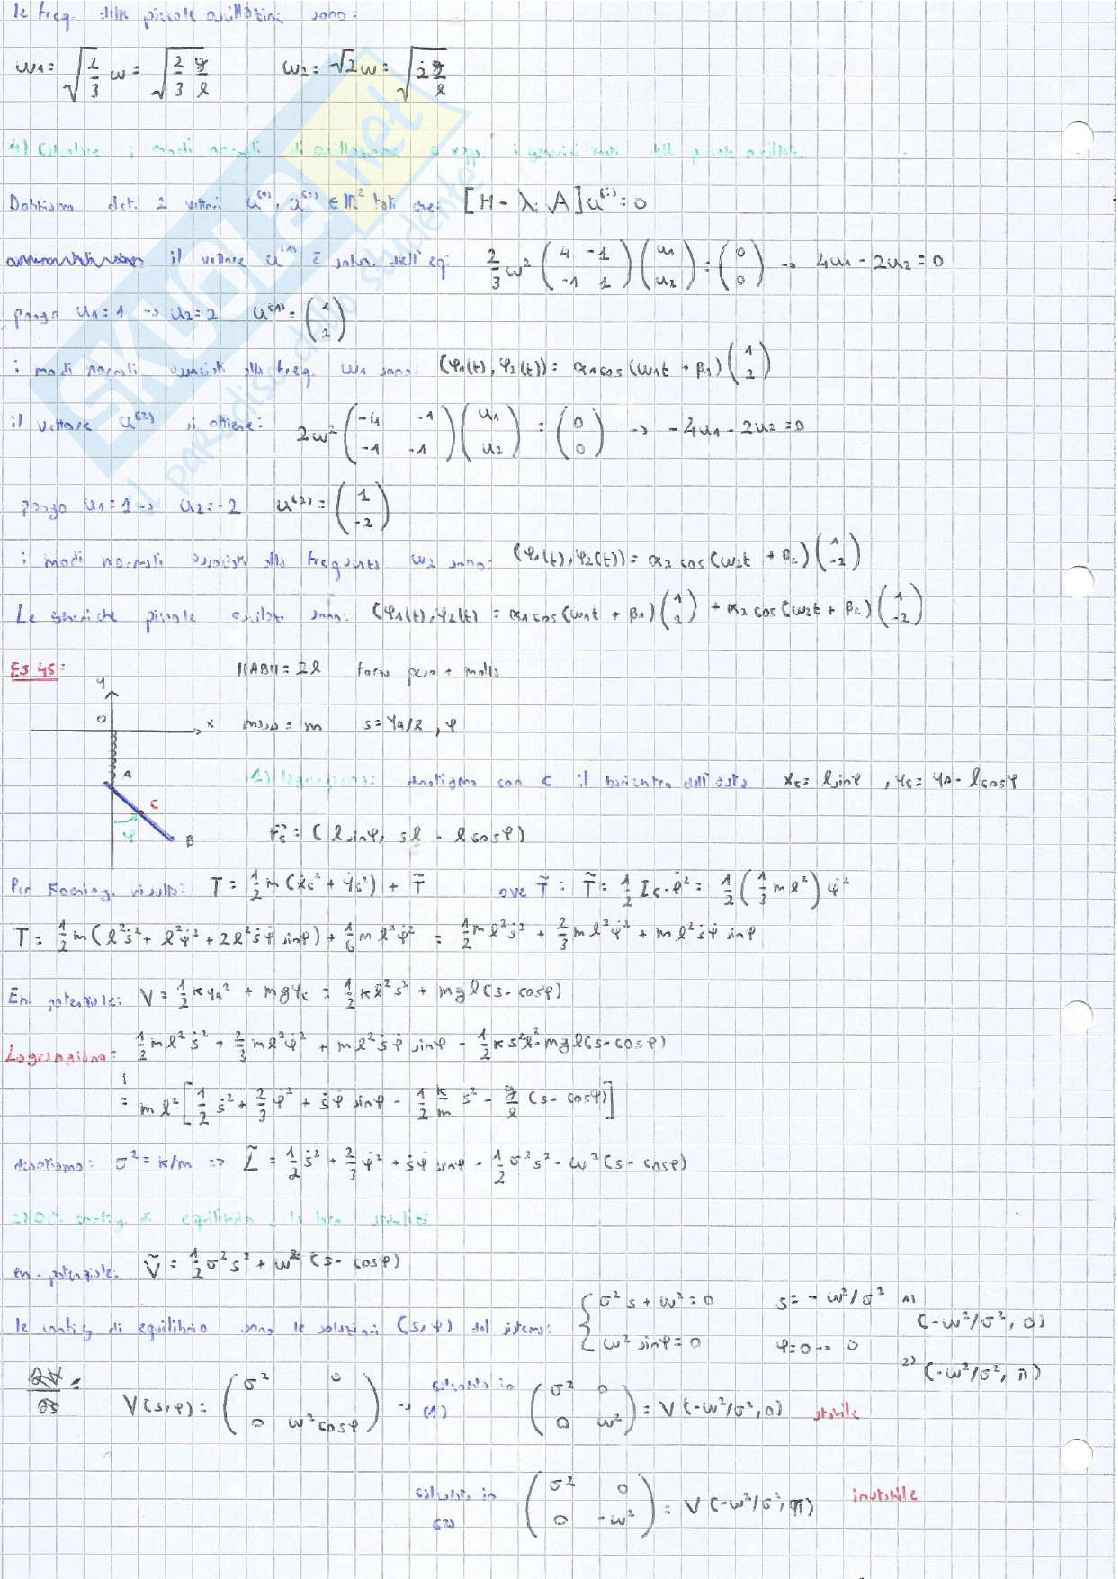 le freq. delle piccole oscillazioni sono:
ω1 = √(2/3) ω = √(2/3 g/l)    ω2 = √2 ω = √(2 g/l)
4) Calcolare i modi normali di oscillazione e
Dobbiamo det. 2 vettori u⁽¹⁾, u⁽²⁾ ∈ ℝ² tali che: [H - λi A] u⁽ⁱ⁾ = 0
il vettore u⁽¹⁾ è soluz. dell'eq: 2/3 ω² (4 -1; -1 1) (u1; u2) = (0; 0) → 4u1 - 2u2 = 0
pongo u1 = 1 → u2 = 2    u⁽¹⁾ = (1; 2)
i modi normali associati alla freq. ω1 sono: (φ1(t), φ2(t)) = α1 cos(ω1t + β1) (1; 2)
il vettore u⁽²⁾ si ottiene: 2ω² (-4 -1; -1 -1) (u1; u2) = (0; 0) → -4u1 - 2u2 = 0
pongo u1 = 1 → u2 = -2    u⁽²⁾ = (1; -2)
i modi normali associati alla frequenza ω2 sono: (φ1(t), φ2(t)) = α2 cos(ω2t + β2) (1; -2)
Le generiche piccole oscillaz. sono: (φ1(t), φ2(t)) = α1 cos(ω1t + β1) (1; 2) + α2 cos(ω2t + β2) (1; -2)
Es 45:    |(AB)| = 2l    forza peso + molla
y
O    x    massa = m    s = yA/l, φ
A
1) Lagrangiana: denotiamo con C il baricentro dell'asta    xc = l sinφ, yc = yA - l cosφ
C
φ    B    rc = (l sinφ, sl - l cosφ)
Per Koenig. risulta: T = 1/2 m (ẋc² + ẏc²) + T̃    ove T̃: T̃ = 1/2 Ic·φ̇² = 1/2 (1/3 m l²) φ̇²
T = 1/2 m (l²ṡ² + l²φ̇² + 2l²ṡφ̇ sinφ) + 1/6 m l²φ̇² = 1/2 m l²ṡ² + 2/3 m l²φ̇² + m l²ṡφ̇ sinφ
En. potenziale: V = 1/2 k yA² + mg yc = 1/2 k l² s² + mgl (s - cosφ)
Lagrangiana = 1/2 m l² ṡ² + 2/3 m l² φ̇² + m l² ṡφ̇ sinφ - 1/2 k s² l² - mgl (s - cosφ)
= m l² [1/2 ṡ² + 2/3 φ̇² + ṡφ̇ sinφ - 1/2 k/m s² - g/l (s - cosφ)]
denotiamo: σ² = k/m => L̃ = 1/2 ṡ² + 2/3 φ̇² + ṡφ̇ sinφ - 1/2 σ² s² - ω² (s - cosφ)
config. di equilibrio e la loro stabilità
en. potenziale: Ṽ = 1/2 σ² s² + ω² (s - cosφ)
le config di equilibrio sono le soluzioni (s, φ) del sistema: { σ² s + ω² = 0    s = - ω²/σ²    1) (-ω²/σ², 0)
ω² sinφ = 0    φ = 0    2) (-ω²/σ², π)
∂V/∂s =    V(s, φ) = (σ² 0; 0 ω² cosφ) → calcolata in (1) (σ² 0; 0 ω²) = V(-ω²/σ², 0)    stabile
calcolata in (2) (σ² 0; 0 -ω²) = V(-ω²/σ², π)    instabile
SKUOLA.net
il paradiso dello studente